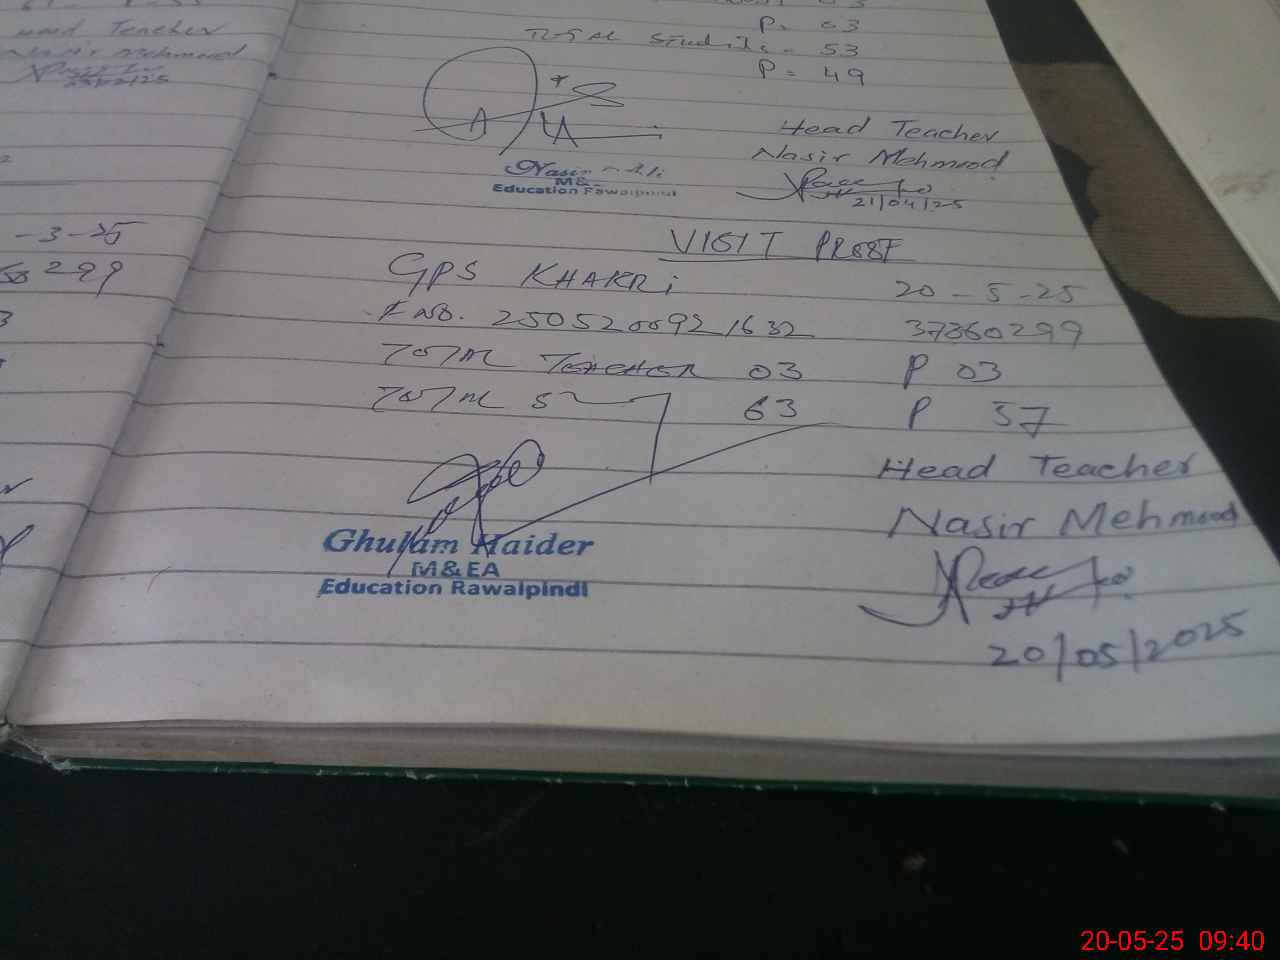 Teacher
Nasir Mehmood
-3-25
299
P= 03
Total Students - 53
P = 49
Head Teacher
Nasir Mehmood
21/04/25
Nasir
M&
Education Rawalpindi
VISIT PROOF
GPS KHAKRi
20-5-25
No. 2505200921632
37360299
TOTAL TEACHER 03 P 03
TOTAL S 63 P 57
Head Teacher
Nasir Mehmood
20/05/2025
Ghulam Haider
M&EA
Education Rawalpindi
20-05-25 09:40